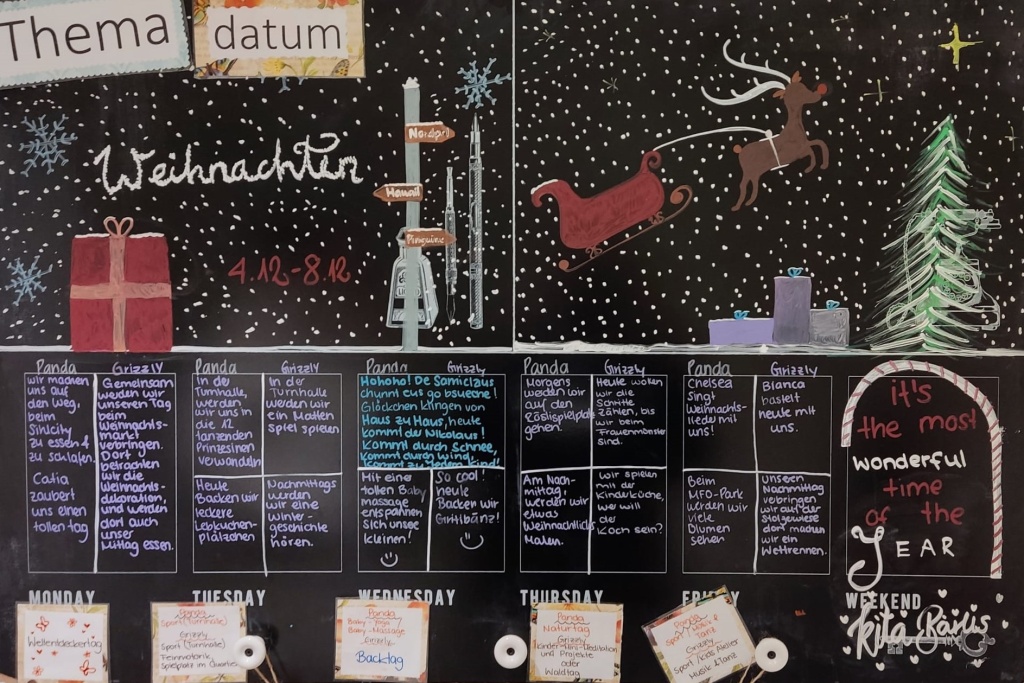 Thema
datum
Weihnachten
4.12-8.12
Nordpol
Hawaii
Pinguine
Panda
wir machen
uns auf
den weg,
beim
Sihlcity
zu essen &
zu schlafen.
Catia
zaubert
uns einen
tollen tag
Grizzly
Gemeinsam
werden wir
unseren Tag
beim
weihnachts-
markt
verbringen.
Dort
betrachten
wir die
Weihnachts-
dekoration,
und werden
dort auch
unser
Mittag essen.
MONDAY
Panda
In der
Turnhalle,
werden
wir uns in
die 12
tanzenden
Prinzesinen
verwandeln
Heute
Backen wir
leckere
Lebkuchen-
plätzchen
Grizzly
In der
Turnhalle
werden wir
ein Matten
spiel spielen
Nachmittags
werden
wir eine
Winter-
geschichte
hören.
TUESDAY
Panda
Grizzly
Hohoho! De Samiclaus
chunnt eus go bsueche!
Glöckchen klingen von
Haus zu Haus, heute
kommt der Nikolaus!
Kommt durch Schnee,
kommt durch wind,
kommt zu jedem Kind!
Mit einer
tollen Baby
massage
entspannen
sich unsee
kleinen!
So cool!
heute
Backen wir
Grittibänz!
WEDNESDAY
Panda
Morgens
werden wir
auf den
Röslispielplatz
gehen!
Am Nach-
mittag,
werden wir
etwas
Weihnachtliches
Malen.
Grizzly
Heute wollen
wir die
Schritte
zählen, bis
wir beim
Frauenmünster
sind.
Wir spielen
mit der
Kinderküche,
wer will
der
Koch sein?
THURSDAY
Panda
Chelsea
singt
Weihnachts-
lieder mit
uns!
Beim
MFO-Park
werden wir
viele
Blumen
sehen
Grizzly
Bianca
bastelt
heute mit
uns.
Unseren
Nachmittag
verbringen
wir auf der
dort machen
wir ein
Wettrennen.
FRIDAY
it's
the most
wonderful
time
of the
YEAR
WEEKEND
kita Rärlis
Weltentdeckertag
Panda
Sport (Turnhalle)
Grizzly
Sport (Turnhalle)
Feinmotorik,
Spielplatz im Quartier
Panda
Baby-Yoga
Baby-Massage
Grizzly
Backtag
Panda
Naturtag
Grizzly
Kinder Mini-Meditation
und Projekte
oder
Waldtag
Panda
Tanz
Grizzly
Sport/Kids Atelier
Musik & Tanz